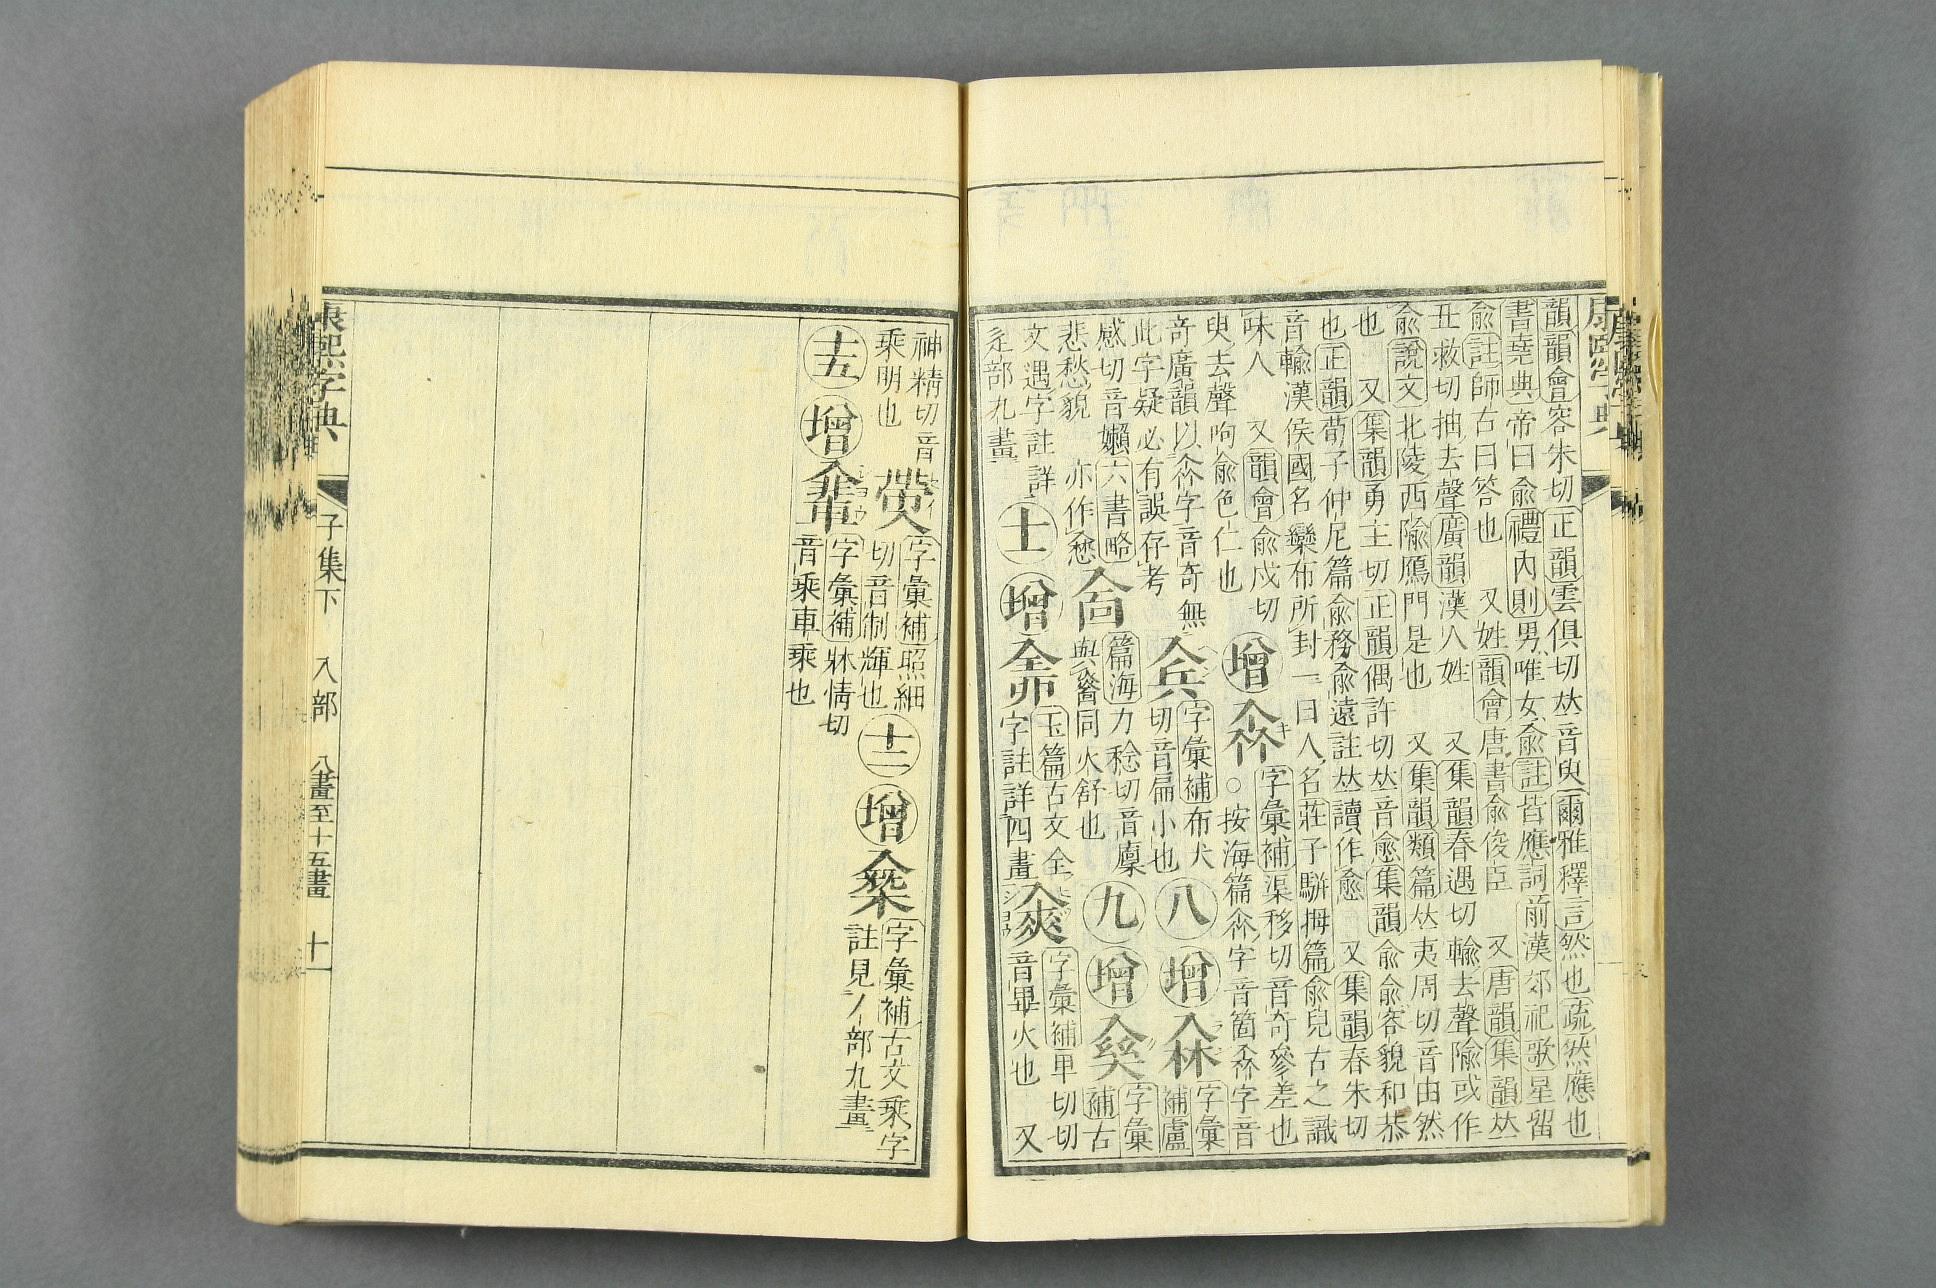 韻韻會容朱切正韻雲俱切𠀤音臾爾雅釋言然也疏然應也
書堯典帝曰兪禮內則男唯女兪註皆應詞前漢郊祀歌星留
兪註師古曰答也 又姓韻會唐書兪俊臣 又唐韻集韻𠀤
丑救切抽去聲廣韻漢人姓 又集韻春遇切輸去聲隃或作
兪說文北陵西隃鴈門是也 又集韻類篇𠀤夷周切音由然
也 又集韻勇主切正韻偶許切𠀤音愈集韻兪兪容貌和恭
也正韻荀子仲尼篇兪務兪遠註𠀤讀作愈 又集韻春朱切
音輸漢侯國名欒布所封一曰人名莊子駢拇篇兪兒古之識
味人 又韻會兪戍切
臾去聲呴兪色仁也
增
字彙補渠移切音奇參差也
○按海篇㕘字音箇㕘字音
奇廣韻以㕘字音奇無
此字疑必有誤存考
字彙補布犬
切音扁小也
八
增
字彙
補盧
感切音嬾六書略
悲愁貌 亦作㥒
篇海力稔切音廩
與㐭同火舒也
九
增
字彙
補古
文遇字註詳
辵部九畫
十一
增
玉篇古文全
字註詳四畫
字彙補畢切切
音畢火也 又
神精切音
乘明也
字彙補照細
切音制輝也
十二
增
字彙補古文乘字
註見丿部九畫
十五
增
字彙補牀情切
音乘車乘也
康熙字典
子集下 入部 八畫至十五畫 十一